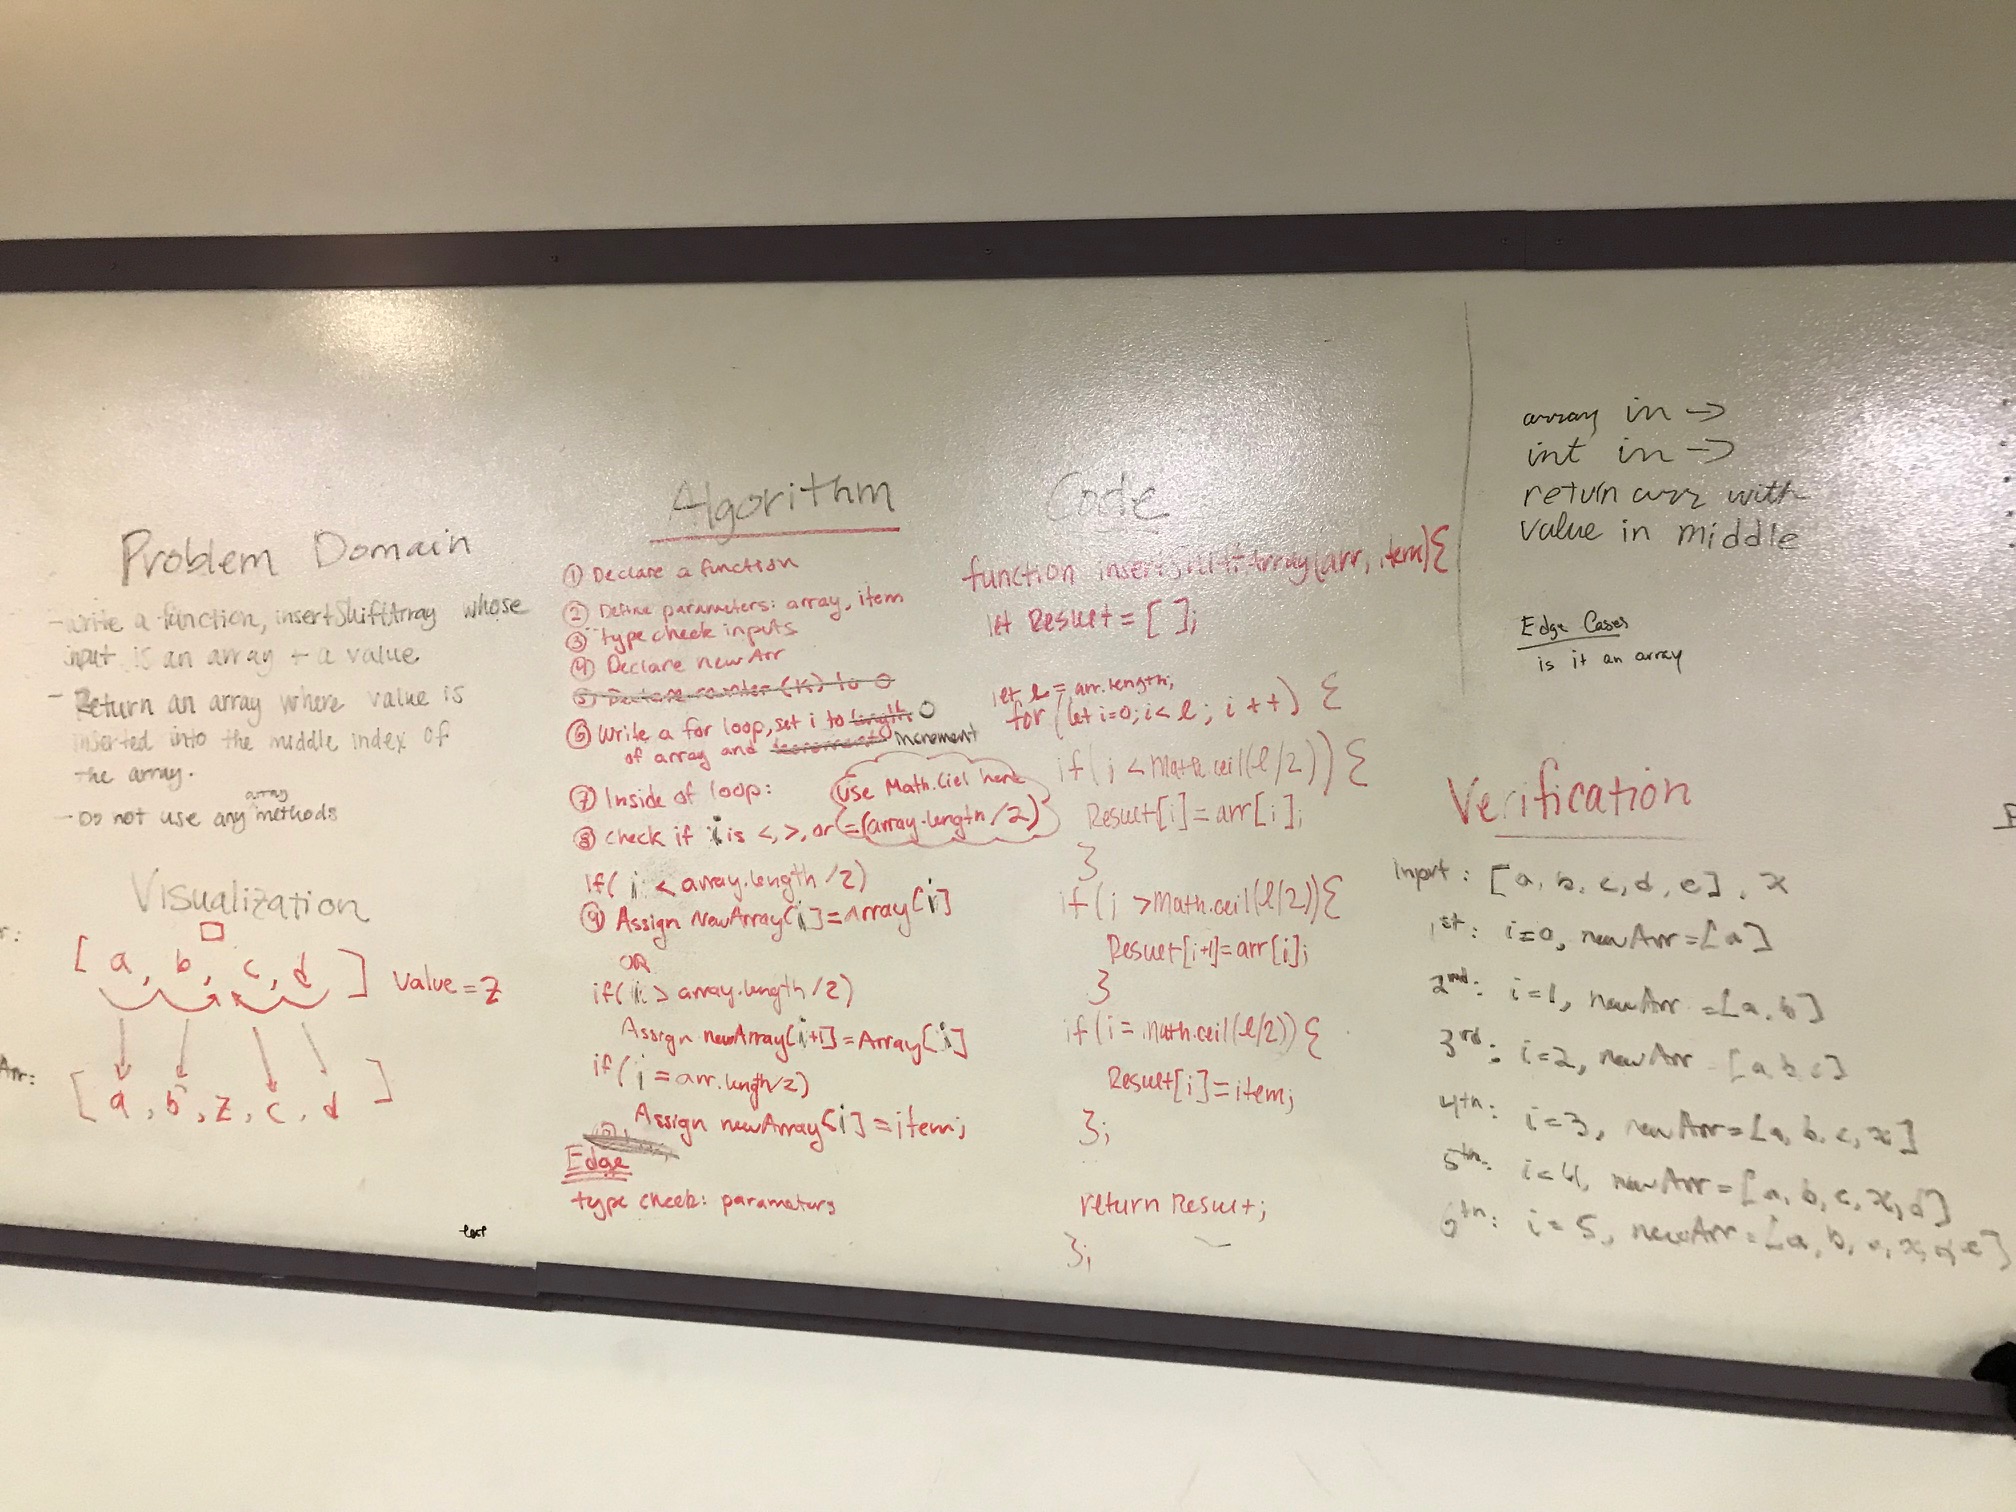 Problem Domain
- write a function, insertShiftArray whose
input is an array + a value
- Return an array where value is
inserted into the middle index of
the array.
array
- Do not use any methods
Visualization
r:
[ a, b, c, d ] value = z
Arr:
[ a, b, z, c, d ]
Algorithm
① Declare a function
② Define parameters: array, item
③ type check inputs
④ Declare new Arr
⑤ Declare counter (K) to 0
⑥ Write a for loop, set i to length 0
of array and decrement increment
⑦ Inside of loop:
use Math.Ciel here
⑧ check if i is <, >, or =(array.length/2)
if( i < array.length /2)
⑨ Assign NewArray[i] = Array[i]
OR
if(i > array.length /2)
Assign newArray[i+1] = Array[i]
if(i = arr.length/2)
Assign newArray[i] = item;
Edge
type check: parameters
Code
function insertShiftArray(arr, item){
let Result = [ ];
let l = arr.length;
for (let i=0; i< l; i++) {
if(i < Math.ceil(l/2)) {
Result[i] = arr[i];
}
if(i >Math.ceil(l/2)){
Result[i+1]=arr[i];
}
if(i = math.ceil(l/2)) {
Result[i]=item;
};
return Result;
};
array in ->
int in ->
return arr with
value in middle
Edge Cases
is it an array
Verification
Input: [a, b, c, d, e], x
1st: i=0, newArr=[a]
2nd: i=1, newArr=[a, b]
3rd: i=2, newArr [a b c]
4th: i=3, newArr=[a, b, c, x]
5th: i=4, newArr=[a, b, c, x, d]
6th: i=5, newArr=[a, b, c, x, d e]